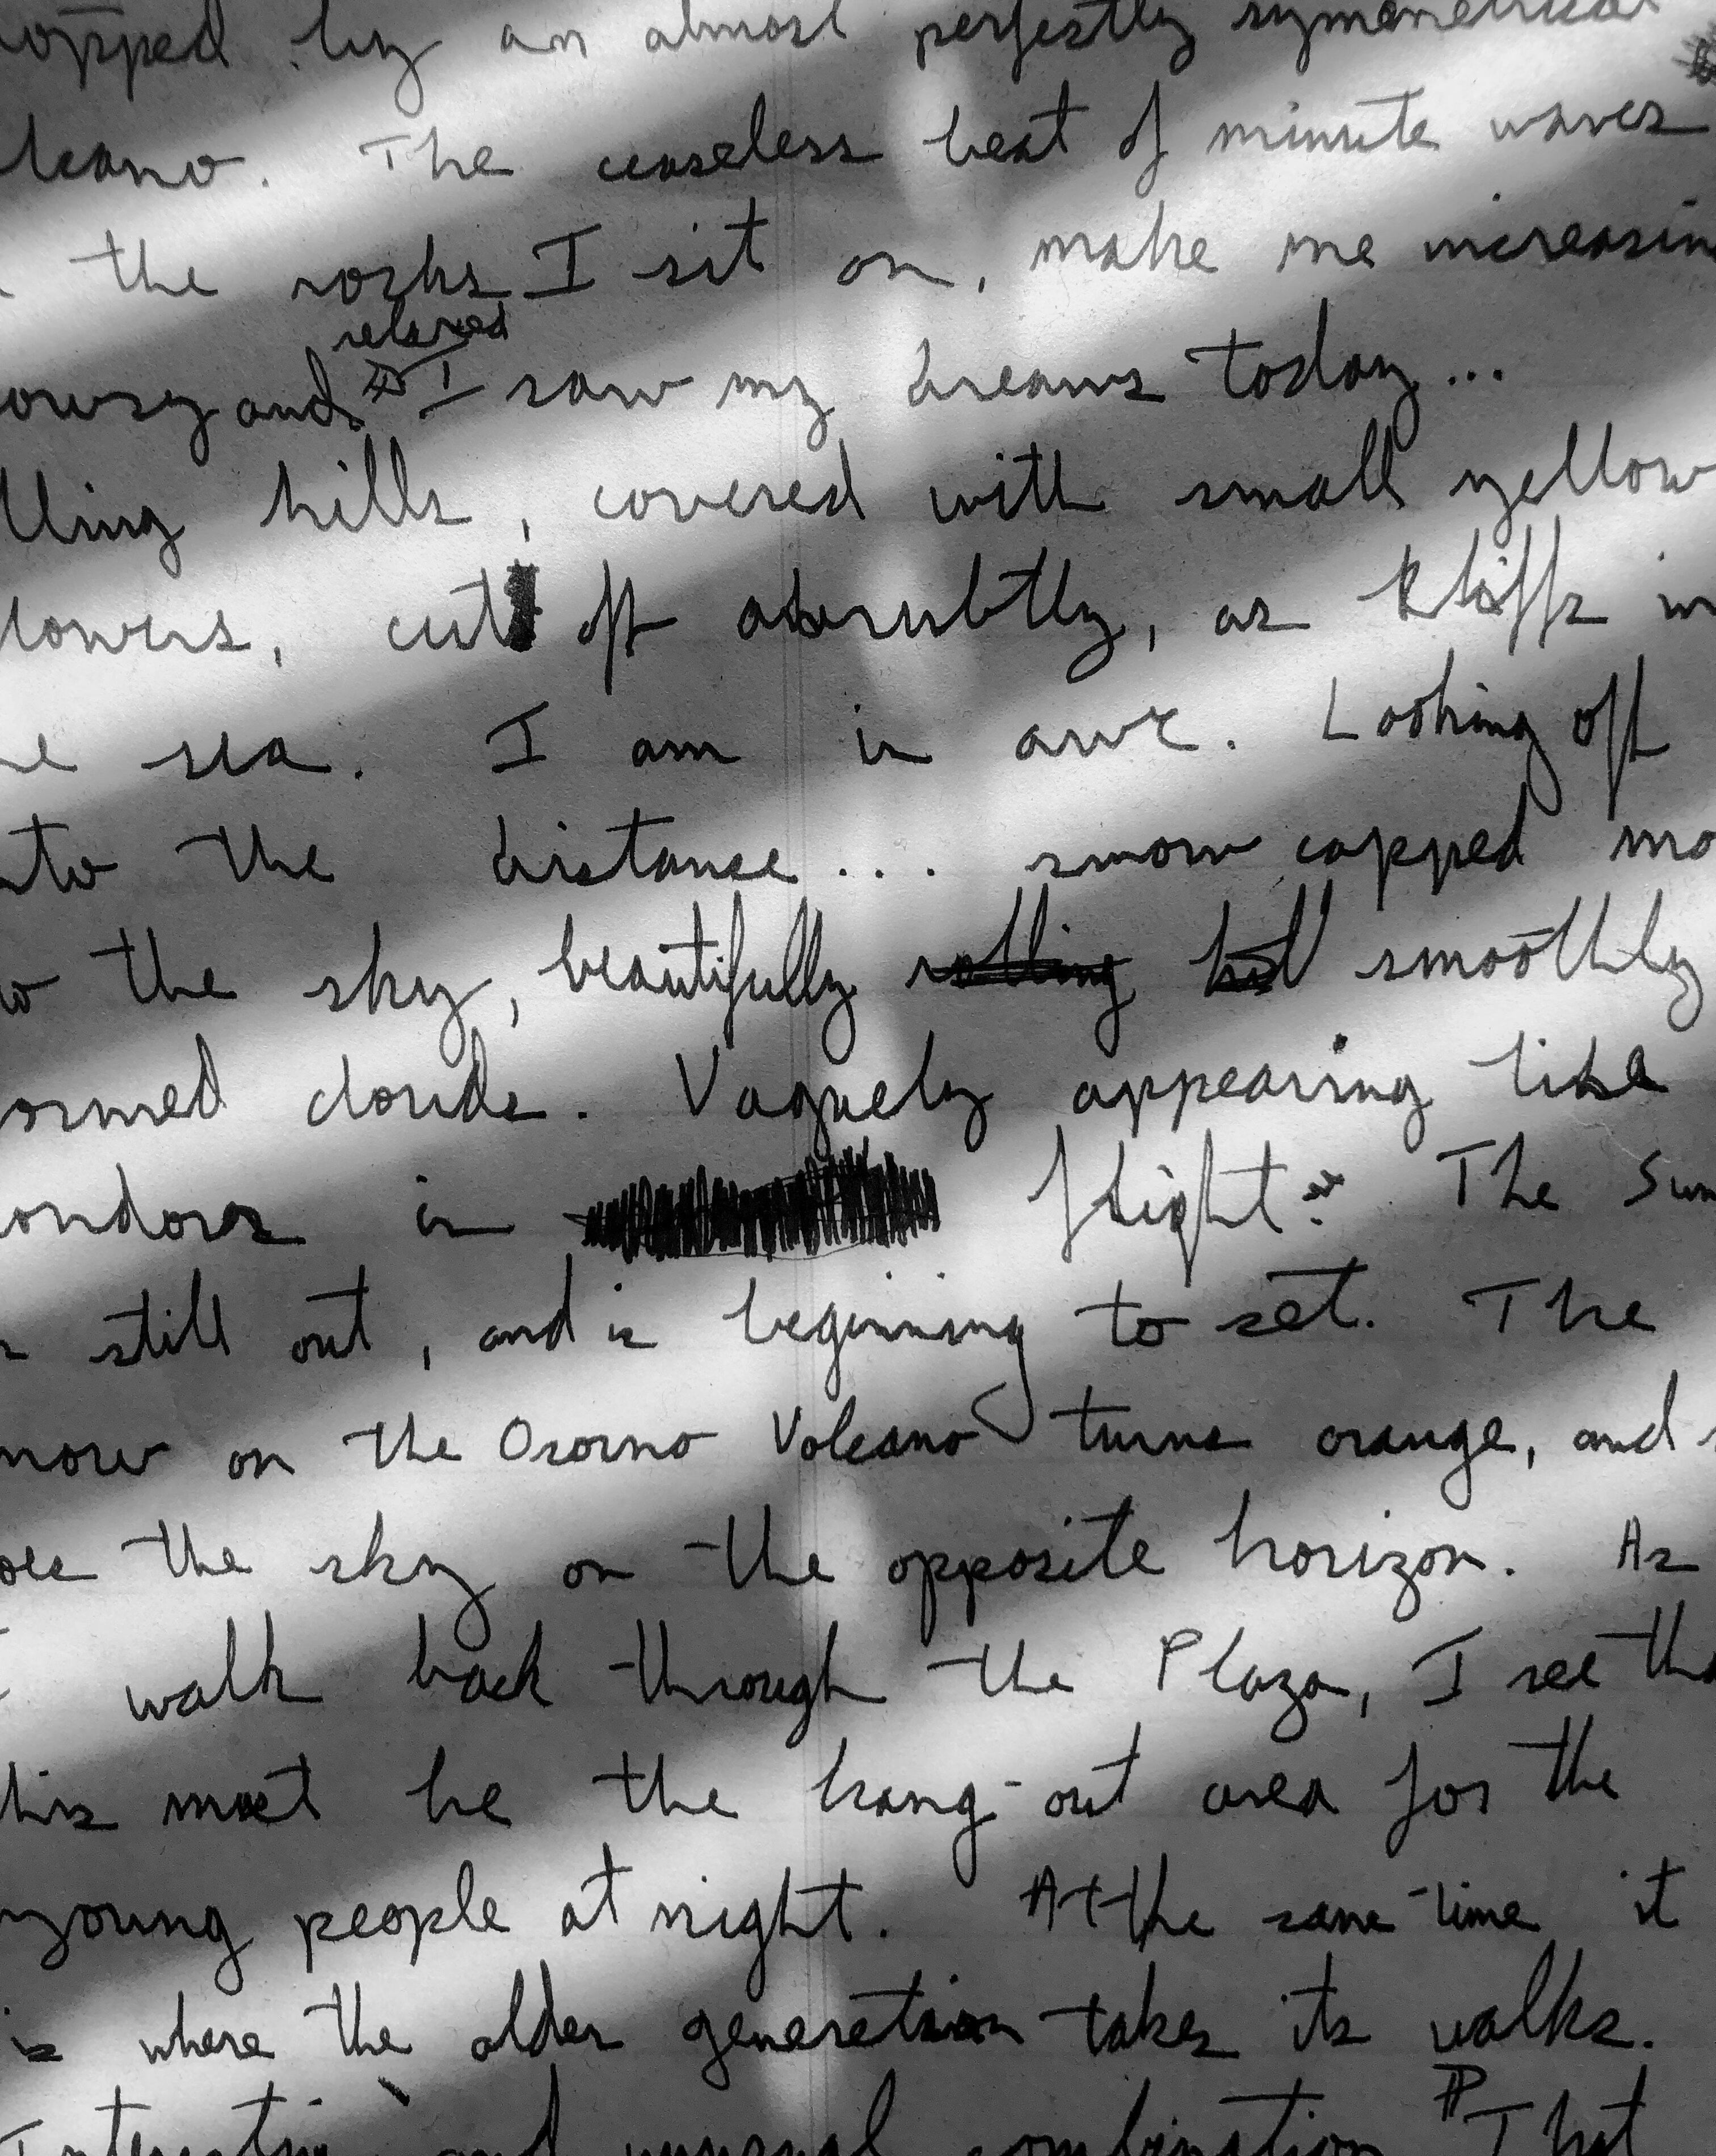 opped by an almost perfectly symmetrical
lcano. The ceaseless beat of minute waves
the rocks I sit on, make me increasin
relaxed
owsy and I saw my dreams today...
lling hills, covered with small yellow
lowers, cut off abrubtly, as kliffs in
e sea. I am in awe. Looking off
nto the distance... snow capped mo
the sky, beautifully rolling smoothly
ormed clouds. Vaguely appearing like
ondors in flight. The Sun
still out, and is beginning to set. The
now on the Osorno Volcano turns orange, and
oes the sky on the opposite horizon. As
walk back through the Plaza, I see tha
his must be the hang-out area for the
young people at night. At the same time it
is where the older generation takes its walks.
Interesting and unusual combination. That